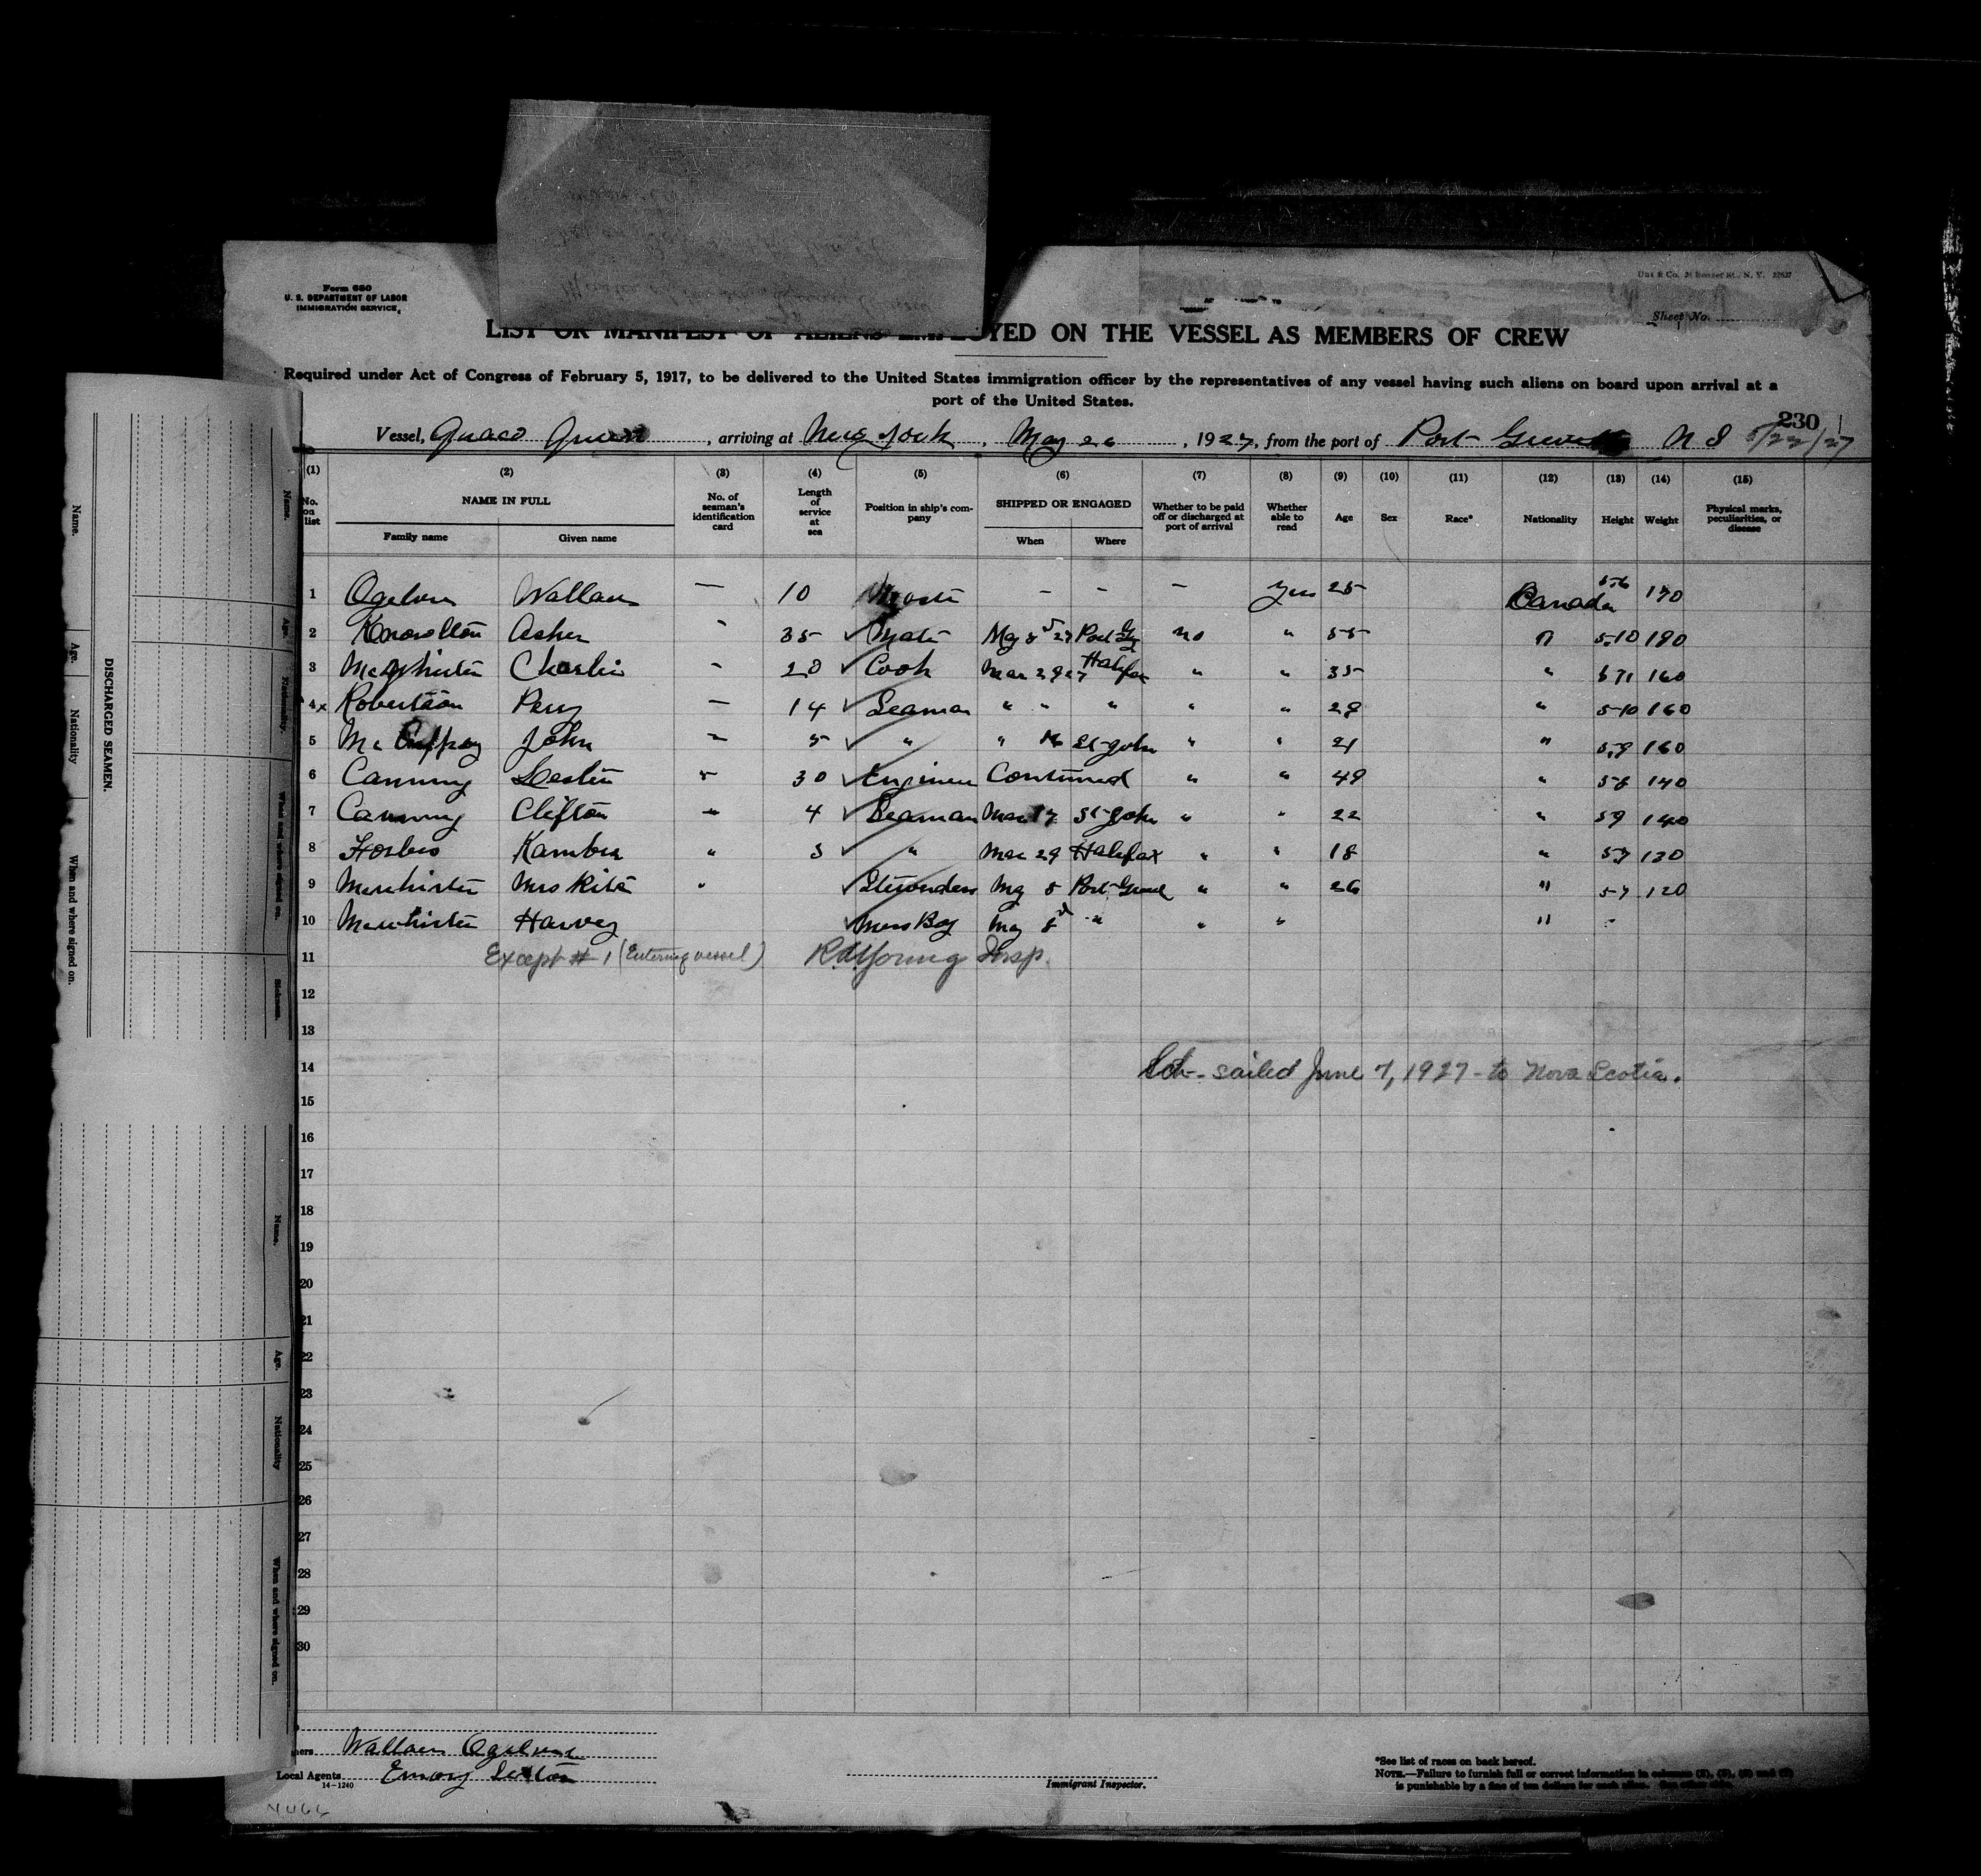 Form 680
U. S. DEPARTMENT OF LABOR
IMMIGRATION SERVICE
Sheet No.
LIST OR MANIFEST OF ALIENS EMPLOYED ON THE VESSEL AS MEMBERS OF CREW
Required under Act of Congress of February 5, 1917, to be delivered to the United States immigration officer by the representatives of any vessel having such aliens on board upon arrival at a
port of the United States.
230
Vessel, Quaco Queen, arriving at New York, May 26, 1927, from the port of Port Greville N S 5/22/27
(1) (2) (3) (4) (5) (6) (7) (8) (9) (10) (11) (12) (13) (14) (15)
No. on list NAME IN FULL Family name Given name No. of seaman's identification card Length of service at sea Position in ship's company SHIPPED OR ENGAGED When Where Whether to be paid off or discharged at port of arrival Whether able to read Age Sex Race* Nationality Height Weight Physical marks, peculiarities, or disease
1 Ogilvie Wallace — 10 Master - - - Yes 25 Canada 5-6 170
2 Knowlton Asher - 35 Mate May 8 27 Port G no " 55 " 5-10 180
3 McWhirter Charlie - 20 Cook Mar 29 27 Halifax " " 35 " 5 71 160
4x Robertson Perry — 14 Seaman " " " " " 28 " 5-10 160
5 Mc John - 5 " " 16 St John " " 21 " 5.9 160
6 Canning Leslie - 30 Engineer Continued " " 49 " 5-8 140
7 Canning Clifton - 4 Seaman Mar 17 St John " " 22 " 5 9 140
8 Forbes " 3 " Mar 29 Halifax " " 18 " 5-7 130
9 McWhirter Mrs Rita " Stewardess May 8 Port Grevl " " 26 " 5-7 120
10 McWhirter Harvey Mess Boy May 8 " " " "
11 Except # 1 (Entering vessel) Young Insp.
12
13
14 Sch - sailed June 7, 1927 - to Nova Scotia.
15
16
17
18
19
20
21
22
23
24
25
26
27
28
29
30
Wallace Ogilvie
Local Agents Emory Sexton
14-1240
Immigrant Inspector.
*See list of races on back hereof.
NOTE.—Failure to furnish full or correct information in columns (2), (5), (6) and (7)
is punishable by a fine of ten dollars for each alien. See other side.
DISCHARGED SEAMEN.
Name.
Age.
Nationality
When and where signed on.
Name.
Age.
Nationality.
When and where signed on.
Name.
Age.
Nationality
When and where signed on.